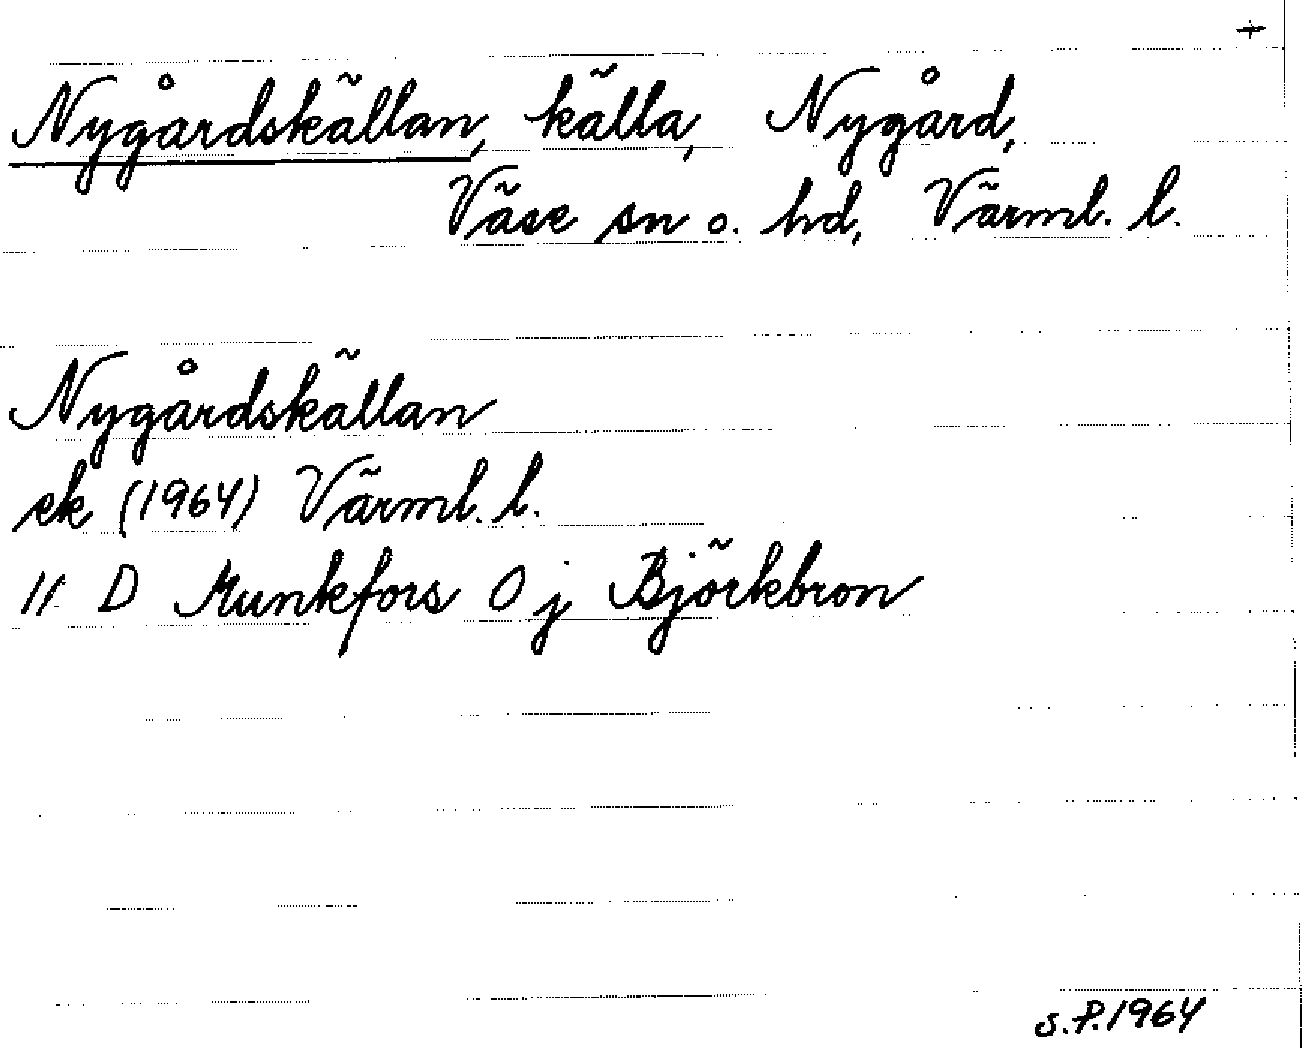 +
Nygårdskällan, källa, Nygård,
Väse sn o. hd, Värml. l.
Nygårdskällan
ek (1964) Värml. l.
11 D Munkfors 0 j Björkbron
S.P. 1964